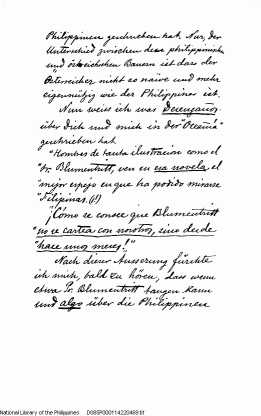 Philippinen geschrieben hat. Nur, der
Unterschied zwischen dem philippinischen
und österreichischen Bauern ist dass der
Österreicher nicht so naïve und mehr
eigennützig wie der Philippiner ist.
Nun weiss ich was Desengaños
über Dich und mich in der "Oceanía"
geschrieben hat
"Hombres de tanta ilustracion como el
Blumentritt, ven en esa novela, el
mejor espejo en que ha podido mirarse
Filipinas. (!)
¡Cómo se conoce que Blumentritt
no se cartea con nosotros, sino desde
hace unos meses!"
Nach dieser Äusserung fürchte
ich mich, bald zu hören, dass wenn
etwa Blumentritt taugen kann
und algo über die Philippinen
National Library of the Philippines